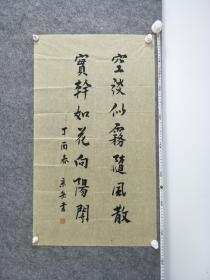 空談似霧隨風散
實幹如花向陽開
丁酉春